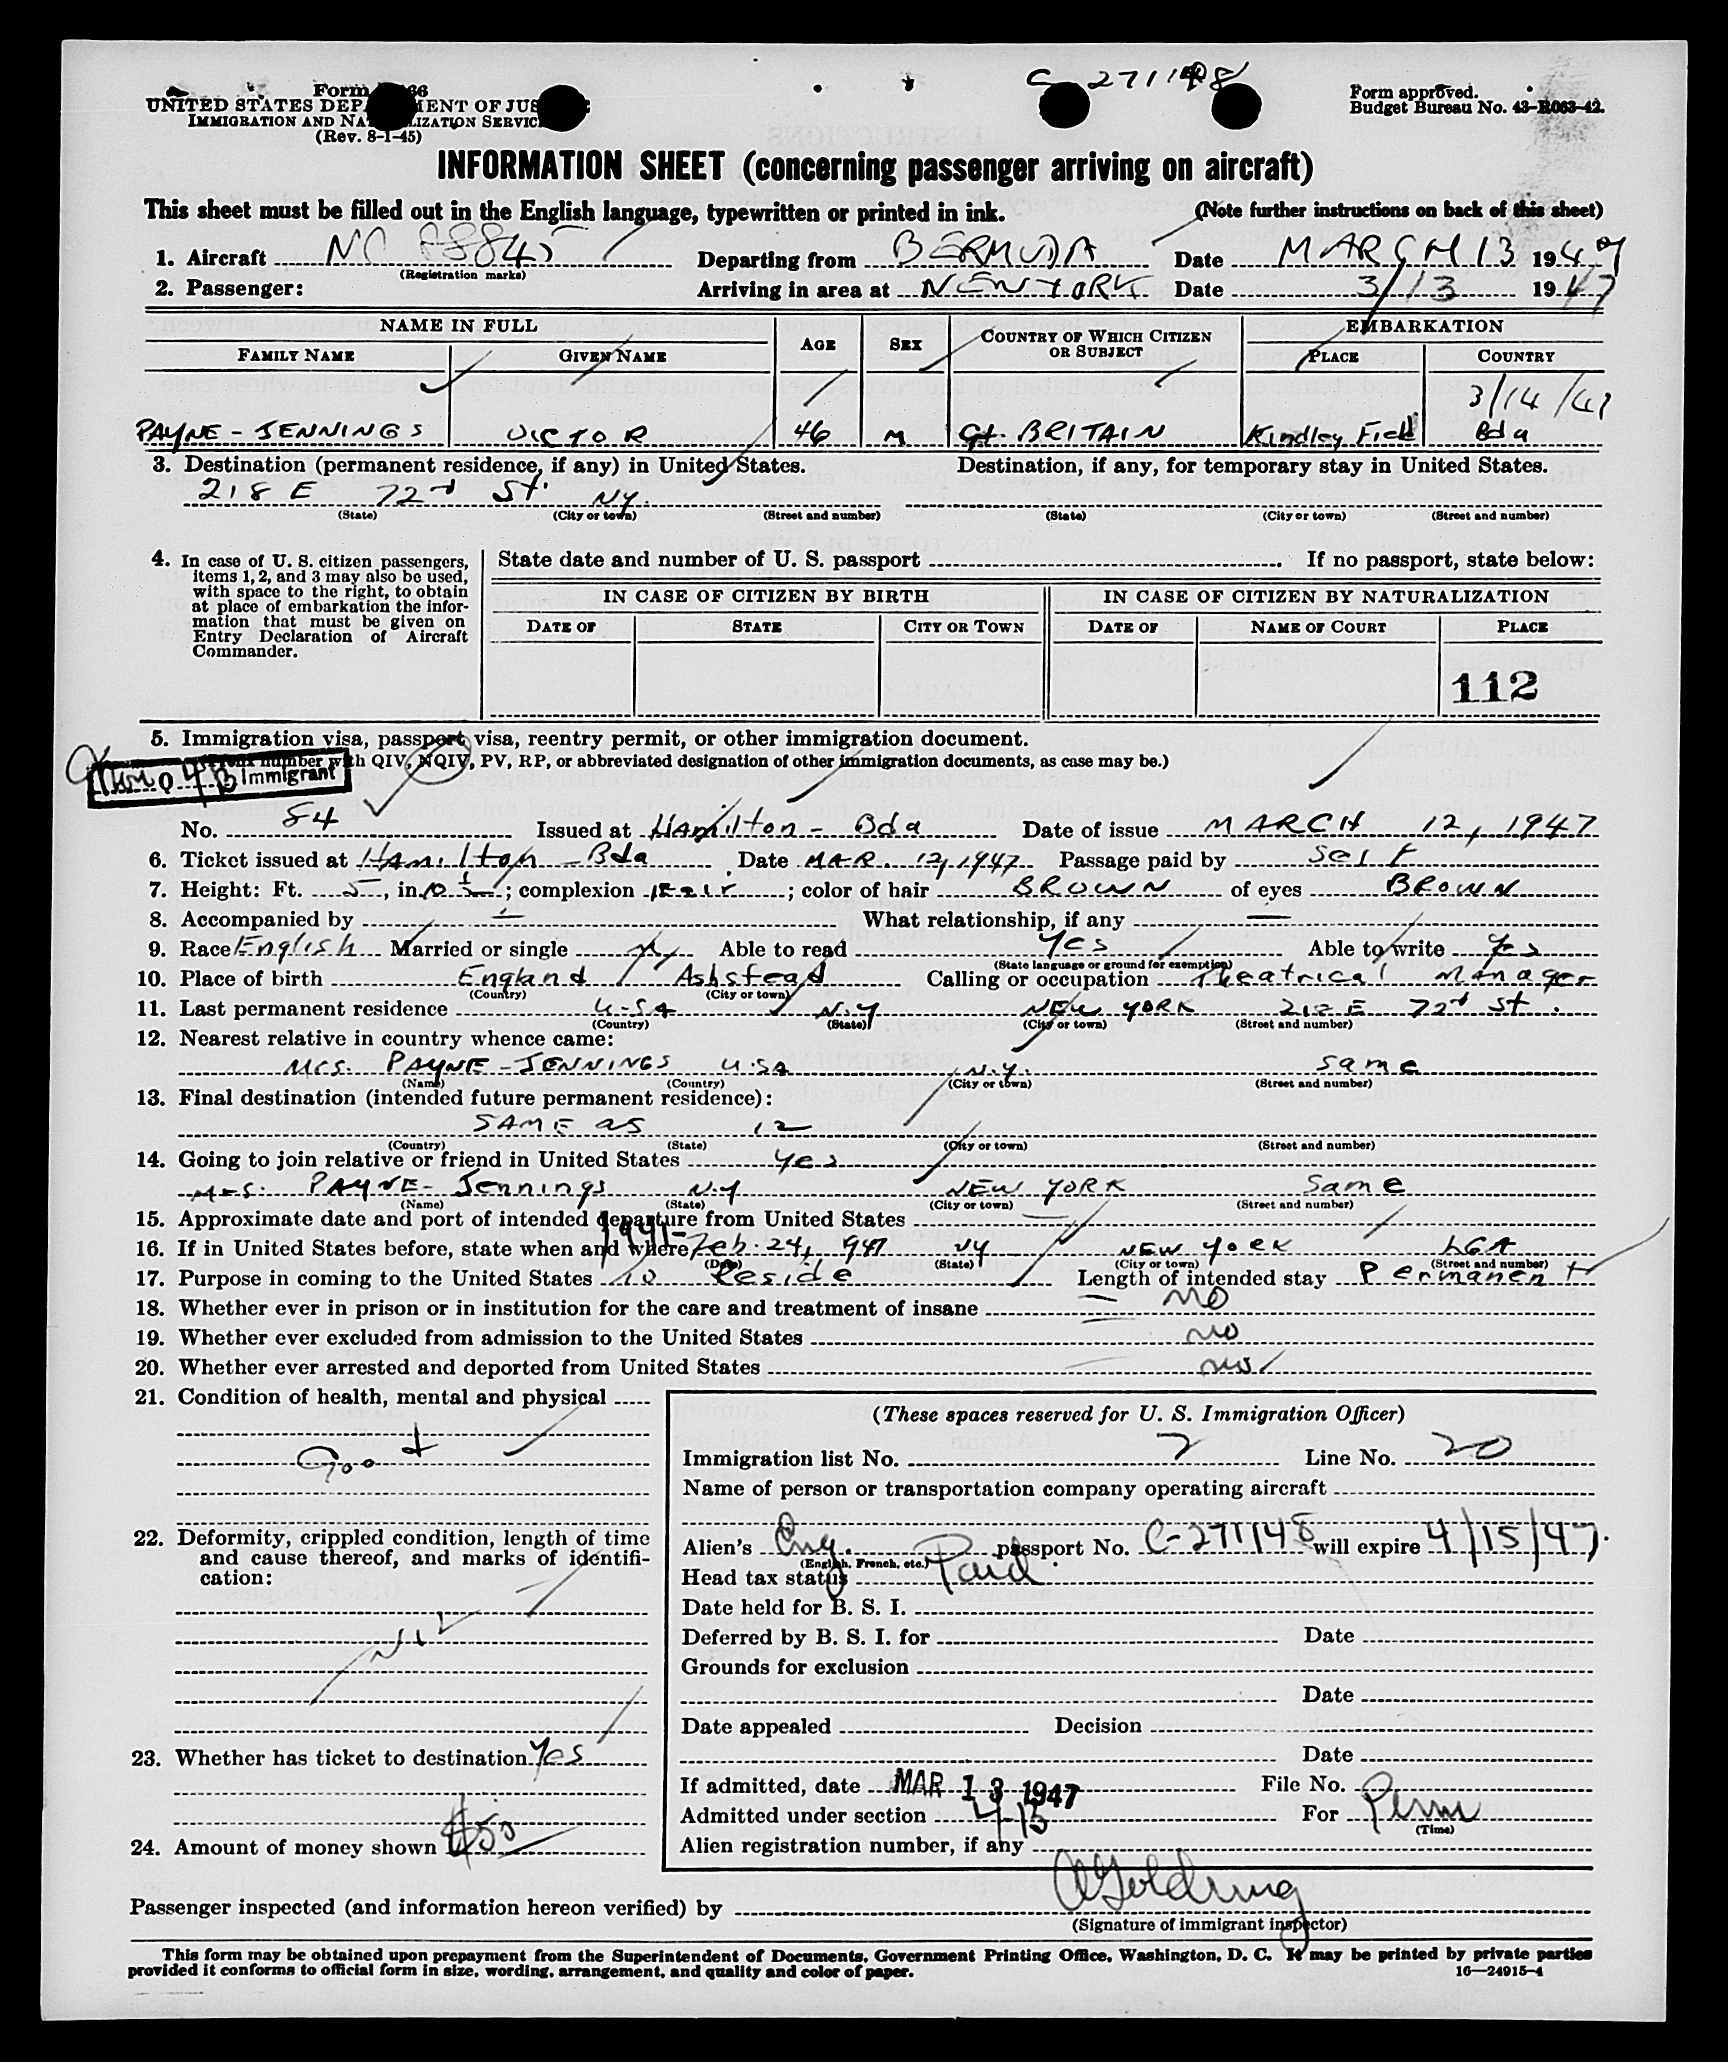 C 271148
Form 66
UNITED STATES DEP MENT OF JUS
IMMIGRATION AND NA LIZATION SERVIC
(Rev. 8-1-45)
Form approved.
Budget Bureau No. 43-R063-42.
INFORMATION SHEET (concerning passenger arriving on aircraft)
This sheet must be filled out in the English language, typewritten or printed in ink. (Note further instructions on back of this sheet)
1. Aircraft NC 88845 Departing from BERMUDA Date MARCH 13 1947
(Registration marks)
2. Passenger: Arriving in area at NEW YORK Date 3/13 1947
NAME IN FULL AGE SEX COUNTRY OF WHICH CITIZEN OR SUBJECT EMBARKATION
FAMILY NAME GIVEN NAME PLACE COUNTRY
3/14/47
PAYNE-JENNINGS VICTOR 46 M Gt. BRITAIN Kindley Field Bda
3. Destination (permanent residence, if any) in United States. Destination, if any, for temporary stay in United States.
218 E 72nd St. NY.
(State) (City or town) (Street and number) (State) (City or town) (Street and number)
4. In case of U. S. citizen passengers, items 1, 2, and 3 may also be used, with space to the right, to obtain at place of embarkation the information that must be given on Entry Declaration of Aircraft Commander.
State date and number of U. S. passport If no passport, state below:
IN CASE OF CITIZEN BY BIRTH IN CASE OF CITIZEN BY NATURALIZATION
DATE OF STATE CITY OR TOWN DATE OF NAME OF COURT PLACE
112
5. Immigration visa, passport visa, reentry permit, or other immigration document.
number with QIV, NQIV, PV, RP, or abbreviated designation of other immigration documents, as case may be.)
4-B Immigrant
No. 84 Issued at Hamilton - Bda Date of issue MARCH 12, 1947
6. Ticket issued at Hamilton - Bda Date MAR. 12, 1947 Passage paid by Self
7. Height: Ft. 5, in. 10 1/2; complexion Fair; color of hair BROWN of eyes BROWN
8. Accompanied by — What relationship, if any —
9. Race English Married or single M Able to read Yes Able to write Yes
(State language or ground for exemption)
10. Place of birth England Ashstead Calling or occupation Theatrical Manager
(Country) (City or town)
11. Last permanent residence U-SA N.Y NEW YORK 212 E 72nd St.
(Country) (State) (City or town) (Street and number)
12. Nearest relative in country whence came:
Mrs. PAYNE-JENNINGS U.SA N.Y. Same
(Name) (Country) (City or town) (Street and number)
13. Final destination (intended future permanent residence):
SAME as 12
(Country) (State) (City or town) (Street and number)
14. Going to join relative or friend in United States Yes
Mrs. PAYNE-Jennings N.Y NEW YORK Same
(Name) (State) (City or town) (Street and number)
15. Approximate date and port of intended departure from United States —
1941-
16. If in United States before, state when and where Feb. 24, 947 NY NEW YORK LGA
(Date) (State) (City or town) (Street and number)
17. Purpose in coming to the United States To Reside Length of intended stay Permanent
18. Whether ever in prison or in institution for the care and treatment of insane NO
19. Whether ever excluded from admission to the United States no
20. Whether ever arrested and deported from United States no
21. Condition of health, mental and physical
Good
22. Deformity, crippled condition, length of time and cause thereof, and marks of identification:
NIL
23. Whether has ticket to destination Yes
24. Amount of money shown $50
(These spaces reserved for U. S. Immigration Officer)
Immigration list No. 2 Line No. 20
Name of person or transportation company operating aircraft
Alien's Eng. passport No. C-271148 will expire 4/15/47.
(English, French, etc.)
Head tax status Paid
Date held for B. S. I.
Deferred by B. S. I. for Date
Grounds for exclusion
Date
Date appealed Decision
Date
If admitted, date MAR 13 1947 File No.
Admitted under section 4-B For Perm
(Time)
Alien registration number, if any
Passenger inspected (and information hereon verified) by A Goldring
(Signature of immigrant inspector)
This form may be obtained upon prepayment from the Superintendent of Documents, Government Printing Office, Washington, D. C. It may be printed by private parties
provided it conforms to official form in size, wording, arrangement, and quality and color of paper. 16—24915-4